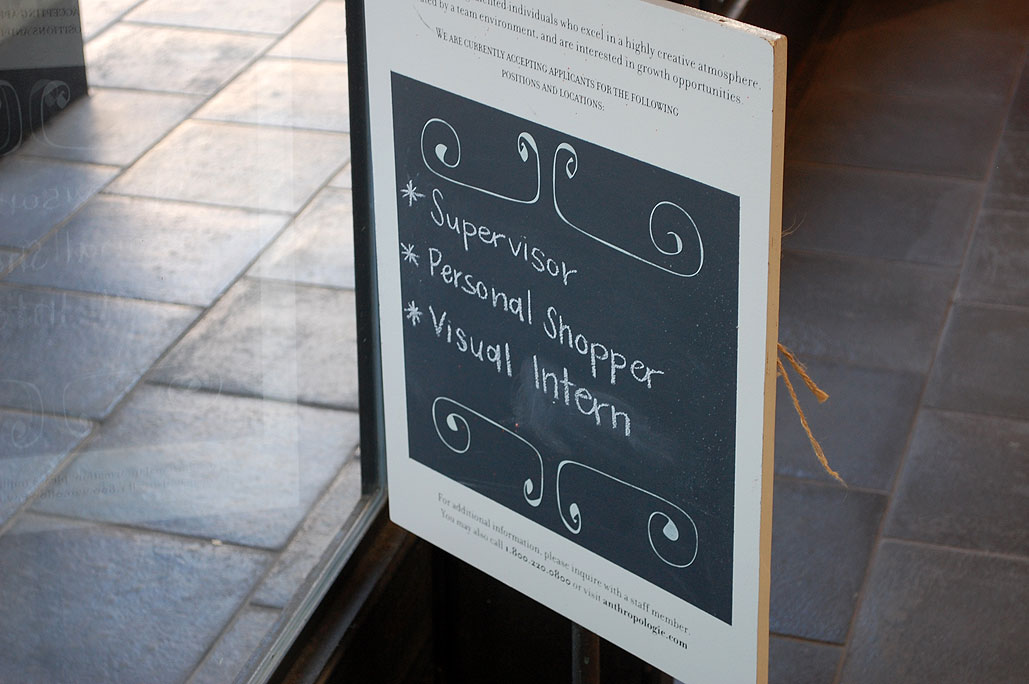 individuals who excel in a highly creative atmosphere.
by a team environment, and are interested in growth opportunities.
WE ARE CURRENTLY ACCEPTING APPLICANTS FOR THE FOLLOWING
POSITIONS AND LOCATIONS:
* Supervisor
* Personal Shopper
* Visual Intern
For additional information, please inquire with a staff member.
You may also call 1.800.220.0800 or visit anthropologie.com